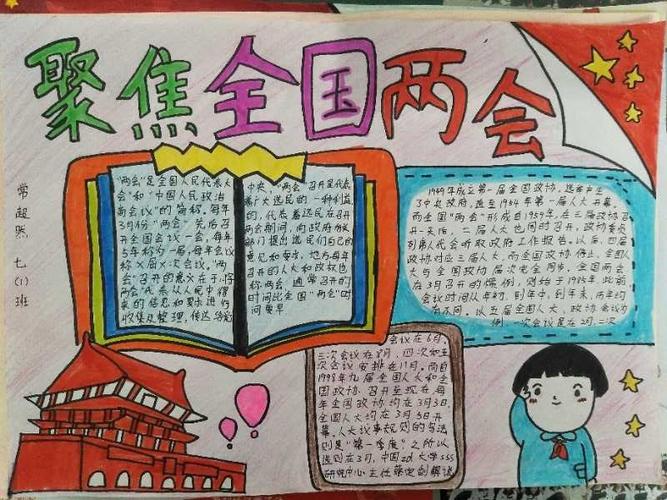 聚焦全国两会
常超然 七(1)班
"两会"是全国人民代表大
会"和"中国人民政治
商会议"的简称。每年
3月份"两会"先后召
开全国会议一会，每年
5年称为一届，每年会议
称X届X次会议，"两
会"召开的意义在于：将
两会"代表从人民中得
来的信息和要求进行
收集及整理，传达给党
中央，"两会"召开是代表
着广大选民的一种利益
的，代表着选民在召开
两会期间，向政府有关
部门提出选民们自己的
意见和要求，地方每年
召开的人大和政协也
称两会，通常召开的
时间比全国"两会"时
间要早
1949年成立第一届全国政协，选举产生
了中央政府，直至1954年第一届人大开幕，
而全国"两会"形成自1959年，在三届政协召
开一天后，二届人大也同时召开，政协委员
列席人代会听取政府工作报告。以后，四届
政协对应三届人大，而全国政协停止，全国人
大与全国政协届次完全同步，全国两会
在3月召开的惯例，则始于1985年，此前
会议时间从年初，到年中，到年末，历年均
有不同。以五届全国人大，政协会议为
例，一次会议是在2月，二次
会议在6月，
三次会议在8月，四次和五
次会议安排在11月。而自
1998年九届全国人大和全
国政协，召开至现在每
年全国政协均在3月3日，
全国人大均在3月5日开
幕。人大议事规则的写法
则是"第一季度"之所以
选到在3月，中国zd大学sss
研究中心主任蔡定剑解读